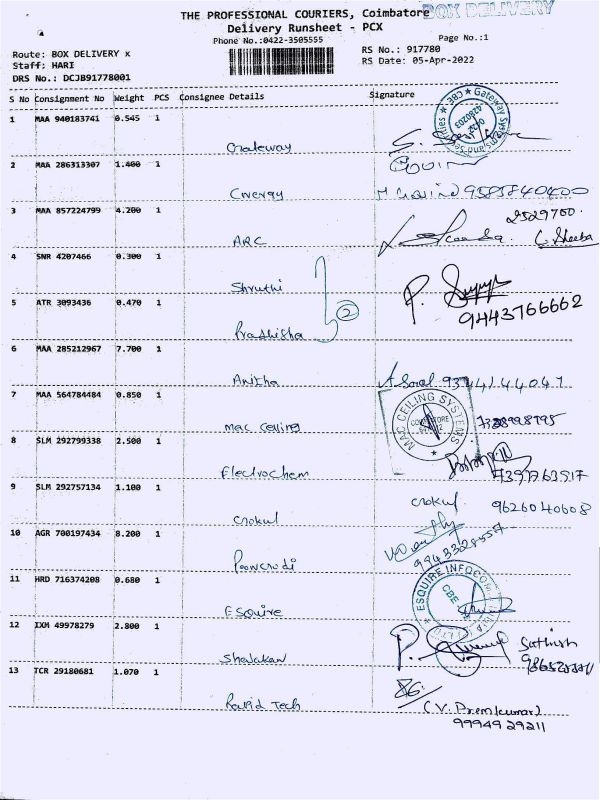 THE PROFESSIONAL COURIERS, Coimbatore BOX DELIVERY
Delivery Runsheet - PCX
Phone No.:0422-3505555 Page No.:1
Route: BOX DELIVERY x RS No.: 917780
Staff: HARI RS Date: 05-Apr-2022
DRS No.: DCJB91778001
S No Consignment No Weight PCS Consignee Details Signature
1 MAA 940183741 0.545 1
Gateway
Gateway Systems and Securities CBE 0422 4280203
2 MAA 286313307 1.400 1
9585840400
3 MAA 857224799 4.200 1
2529700.
ARC
G. Sheeba
4 SNR 4207466 0.300 1
Shruthi
2
5 ATR 3093436 0.470 1
9443766662
6 MAA 285212967 7.700 1
Anitha
7 MAA 564784484 0.850 1
MAC CEILING SYSTEMS
Mac Ceiling
8 SLM 292799338 2.500 1
Electrochem
9 SLM 292757134 1.100 1
Gokul 9626040608
Gokul
10 AGR 700197434 8.200 1
11 HRD 716374208 0.680 1
ESQUIRE INFOCOM CBE
Esquire
12 IXM 49978279 2.800 1
Sathish
13 TCR 29180681 1.070 1
Rapid Tech
(V. Premkumar)
9994929211